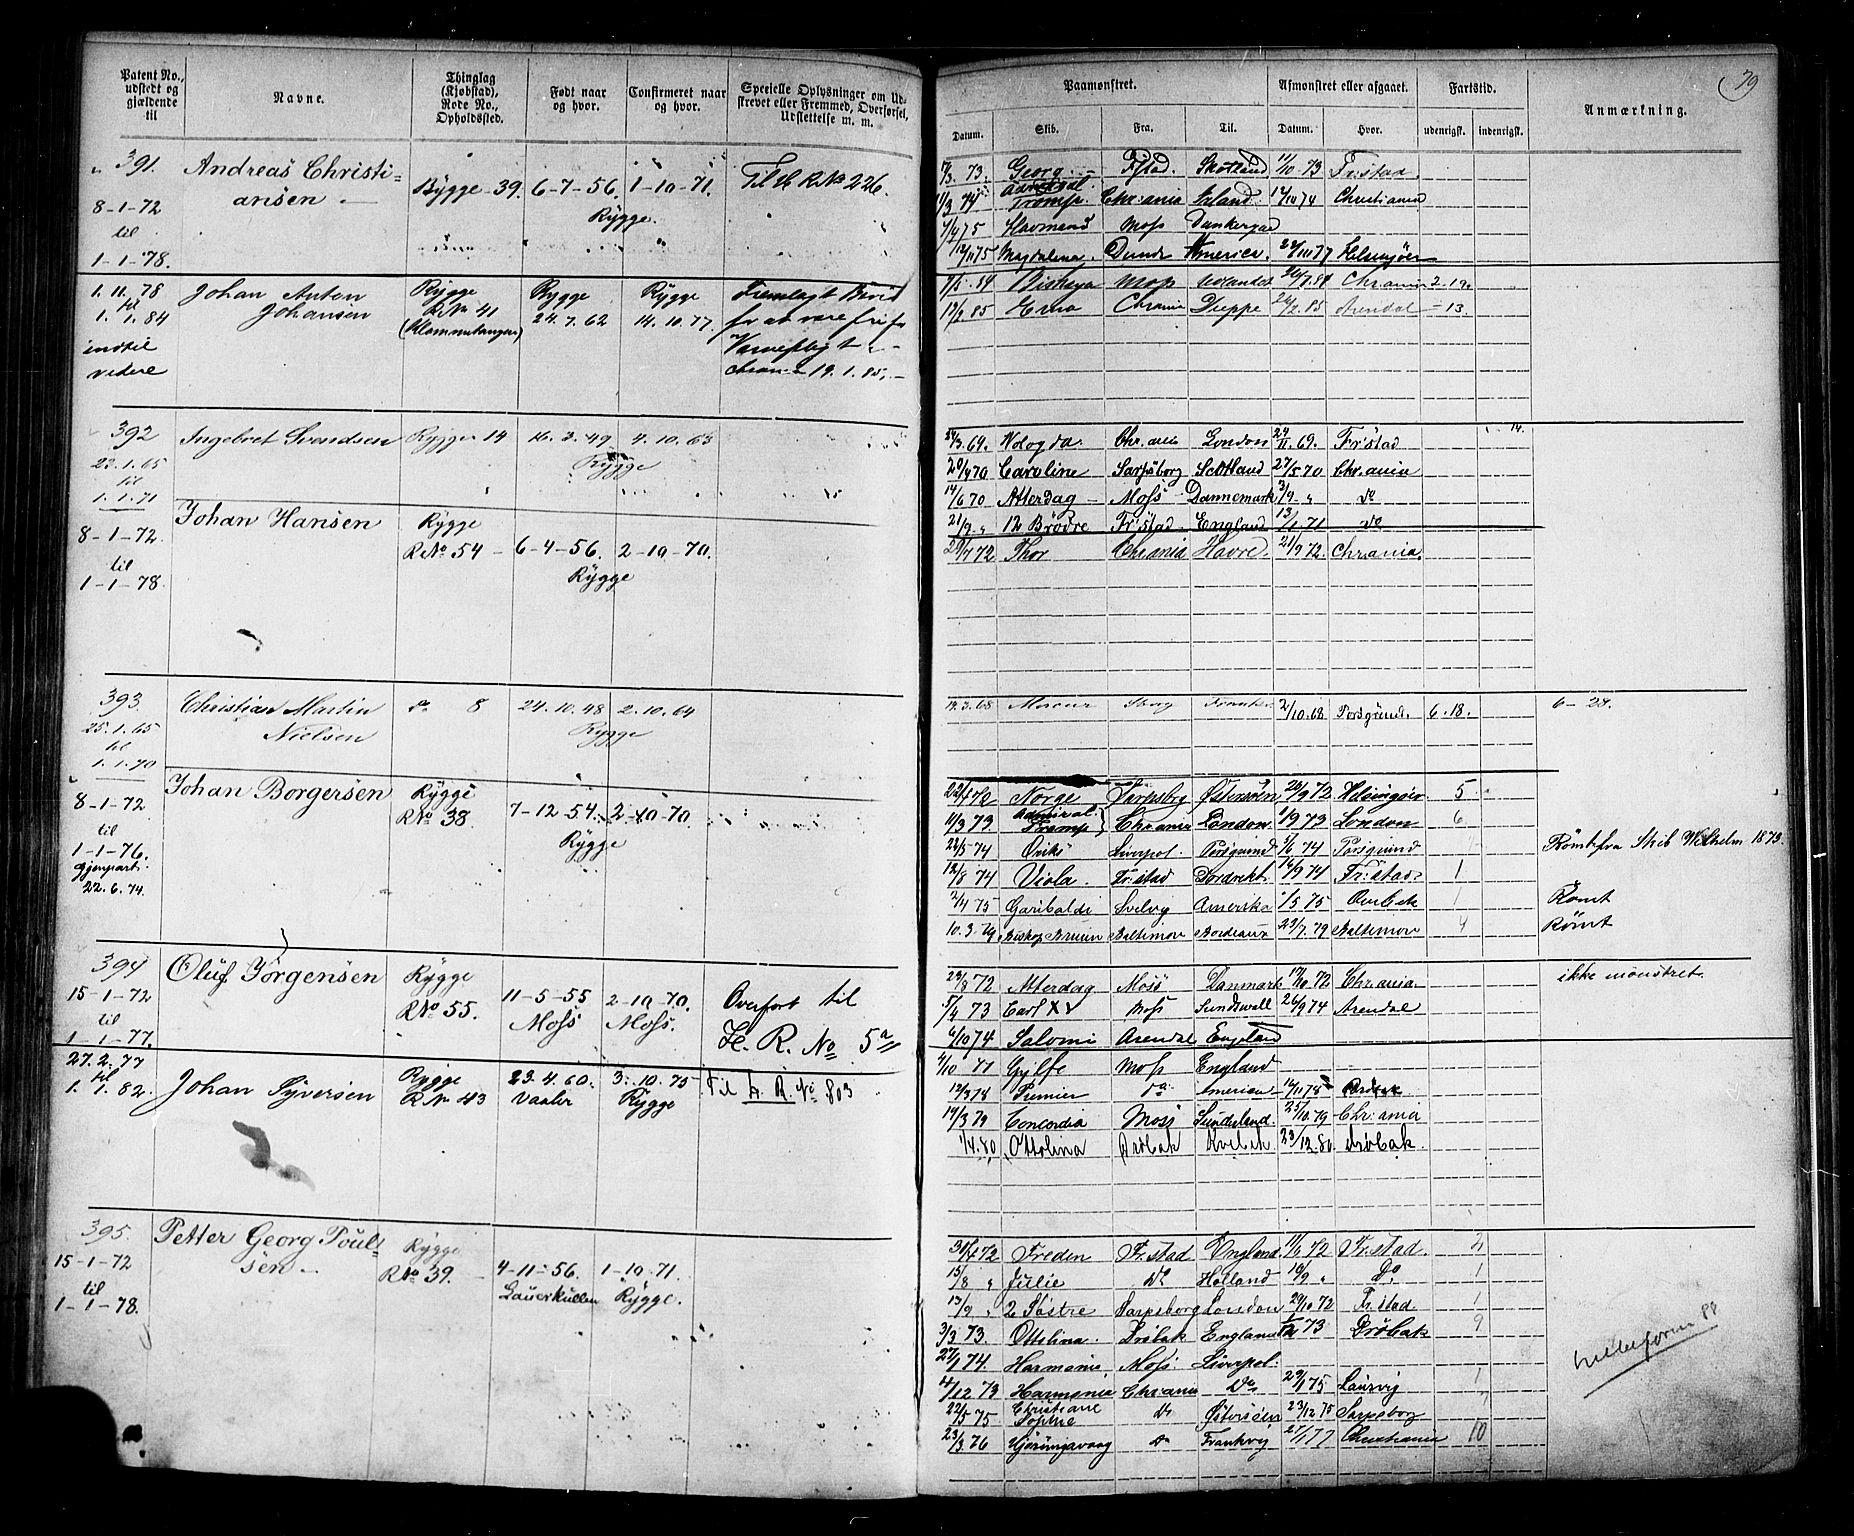 79
Patent No., udstedt og gjældende til
Navne.
Thinglag (Kjøbstad), Rode No., Opholdssted.
Født naar og hvor.
Confirmeret naar og hvor.
Specielle Oplysninger om Udskrevet eller Fremmed, Overførsel, Udslettelse m. m.
Paamønstret.
Afmønstret eller afgaaet.
Fartstid.
Anmærkning.
Datum. Skib. Fra. Til. Datum. Hvor. udenrigsk. indenrigsk.
391. Andreas Christi=
ansen
8-1-72
til
1-1-78.
Rÿgge 39. 6-7-56. 1-10-71. Til H R No 226.
Rÿgge
73. Georg Fstad Skotland 11/10 73 Fr.stad
11/3 74 Tromp. Chr.ania Irland 14/10 74 Christiania
Havmand Moss Dunkerque
12/11 75 Magdalena. Dundee America. Helsingøer
1. 11. 78
til
1. 1. 84
indtil
videre
Johan Anton
Johansen
Rygge
R.No 41
Rygge
24. 7. 62
Rygge
14. 10. 77.
Fremlagt Bevis
for at være fri for
Værnepligt
Chrania 19. 1. 85.
84 Moss Chrania 2. 19
85 Erna Chrania Dieppe 85 Arendal 13.
392 Ingebret Svendsen Rygge 14 16. 3. 49 4. 10. 63
Rygge
22. 1. 65
til
1. 1. 71
3. 69. Wologda Chr.ania London 69. Fr.stad 14.
20/4 70 Caroline Sarpsborg Scotland 27/5 70 Chr.ania
14/6 70 Atterdag Moss Dannemark 3/9 " do
21/9 " 12 Brødre Fr.stad England 13/1 71 do
Johan Hansen
8-1-72.
til
1-1-78.
Rÿgge
R.No 54 6-4-56. 2-10-70.
Rÿgge
29/7 72 Thor Chrania Havre 21/9 72. Chrania.
393. Christian Martin
Nielsen
do 8 24. 10. 48 2. 10. 64
Rygge
25. 1. 65
til
1. 1. 70
3. 68 Mercur 2/10. 68 Porsgrund. 6. 18. 6-24.
Johan Borgersen
8-1-72
til
1-1-76.
gjenpart.
22. 6. 74.
Rÿgge
R.No 38. 7-12-54. 2-10-70.
Rÿgge
22/4 72 Norge Sarpsbrg Østersøen 20/9 72 Helsingøer 5
11/3 73. Admiral Tromp Chrania London 1/9 73 London 6
74 Liverpol. Porsgrund 5/6 74 Porsgrund Rømt fra Skib Wilhelm 1873.
12/8 74 Viola. Fr.stad Dordrekt. 16/9 74 Fr.stad 1
2/4 75 Garibaldi Svelvig Amerika 1/5 75 1 Rømt
10. 3. 79 Biskop Bruun Baltimore Bordeaux 23/7. 79 Baltimore 4 Rømt
394 Oluf Jörgensen
15-1-72
til
1-1-77.
Rÿgge
R.No 55.
11-5-55
Moss
2-10-70.
Moss.
Overført til
H. R. No 5a
72 Atterdag Moss Danmark 17/10 72 Chr.ania. ikke mønstret.
5/4 73 Carl XV Moss Sundsvall 26/9 74 Arendal
6/10 74 Salomi Arendal England
27. 2. 77
til
1. 1. 82.
Johan Syversen
Rygge
R No 43
23. 4. 60.
Vaaler
3. 10. 75
Rÿgge
Til H. R. No 803
4/10 77 Gylfe Moss England
78 Premier do American 78
14/3 79 Concordia Moss Sunderland. 25/10. 79 Chr.ania
1/4. 80 Ottolina Drøbak Kvebek 23/12. 80. Drøbak.
395. Petter Georg Poül=
sen
15-1-72
til
1-1-78.
Rÿgge
R.No 39. 4-11-56. 1-10-71.
Lauerkullen Rÿgge.
30/4 72 Freden Fr.stad England 72 Fr.stad 2
15/8 " Julie do Holland 10/9 " Do 1
13/9 " 2 Søstre Sarpsborg London 29/10 72 Fr.stad 1
3/3 73. Ottolina. Drøbak England 73 Drøbak 9
27/1 74. Harmonie Moss Liverpol.
4/12 73 Harmonie Chrania Do 29/1 75 Laurvig 1
22/5 75 Christiane Sophie do Østersøen 23/12 75 Sarpsborg 7
23/3 76 Hjörüngavaag do Frankrig 21/1 77 Christiania 10